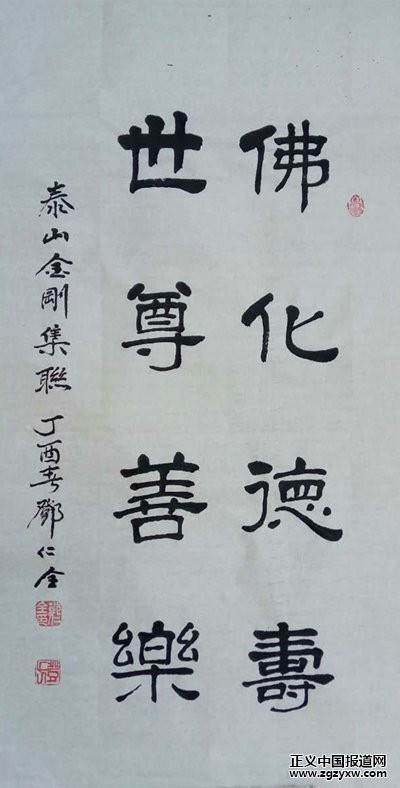 佛化德壽
世尊善樂
泰山金剛集聯丁酉春鄧仁全
正义中国报道网
www.zgzyxw.com